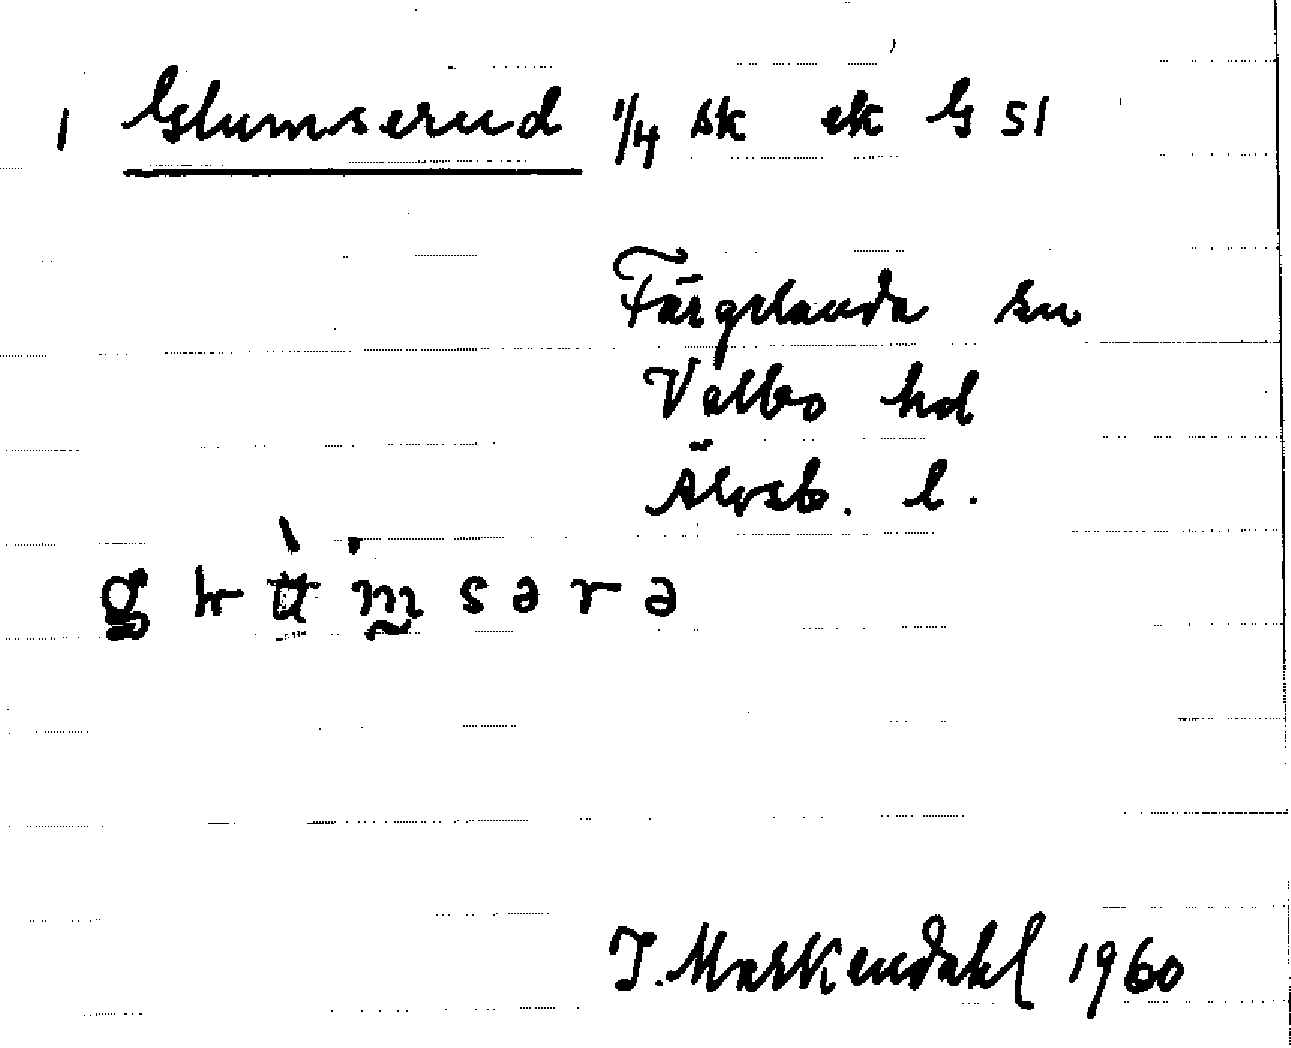 1 Glumserud 1/4 sk ek G 51
Färgelanda sn
Valbo hd
Älvsb. l.
sərə
J. Markendahl 1960